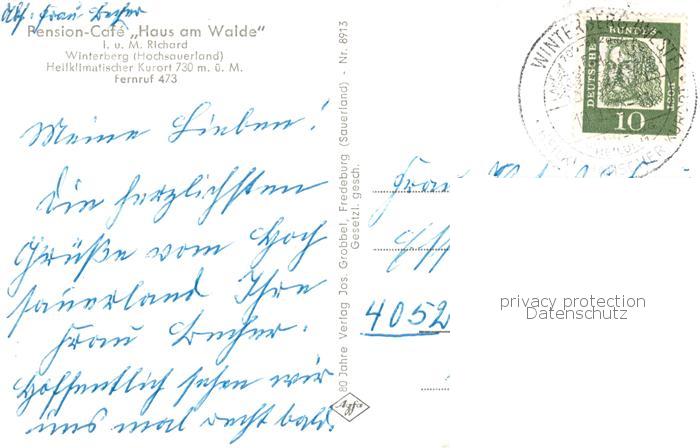 Abs: Frau Becher
Pension-Café „Haus am Walde"
I. u. M. Richard
Winterberg (Hochsauerland)
Heilklimatischer Kurort 730 m. ü. M.
Fernruf 473
Meine Lieben!
Die herzlichsten
Grüße vom Hoch
sauerland Ihre
Frau Becher.
Hoffentlich sehen wir
uns mal recht bald.
80 Jahre Verlag Jos. Grobbel, Fredeburg (Sauerland) - Nr. 8913
Gesetzl. gesch.
Agfa
WINTERBERG (WESTF)
DEUTSCHE BUNDESPOST
10
Frau
Ess
4052
privacy protection
Datenschutz